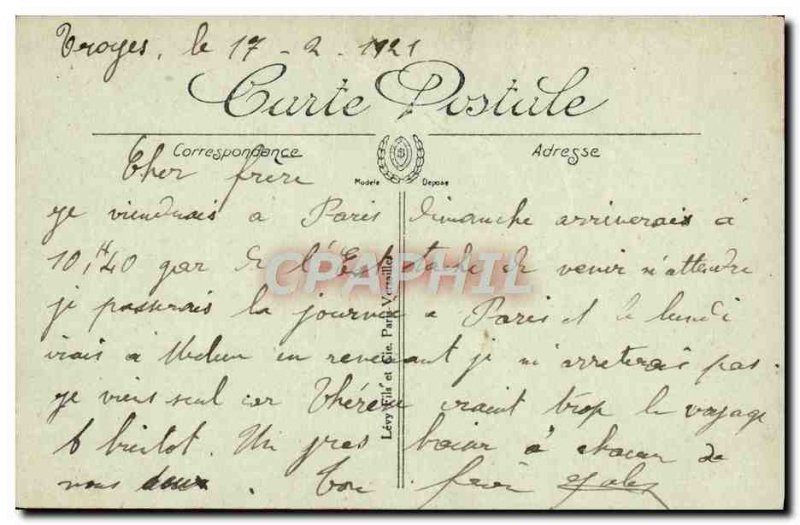 Troyes, le 17 - 2 - 1921
Carte Postale
Correspondance
Adresse
Modèle Déposé
Cher frère
je viendrais a Paris dimanche arriverais à
10,H40 gar de l'Est tache de venir m'attendre
je passerais la journée a Paris et le lundi
irais à Melun en revenant je m'arreterais pas.
je viens seul car Thérèse craint trop le voyage
bientot. Un gros baiser à chacun de
vous deux. Ton frère
Lévy Fils et Cie, Paris-Versailles
CPAPHIL